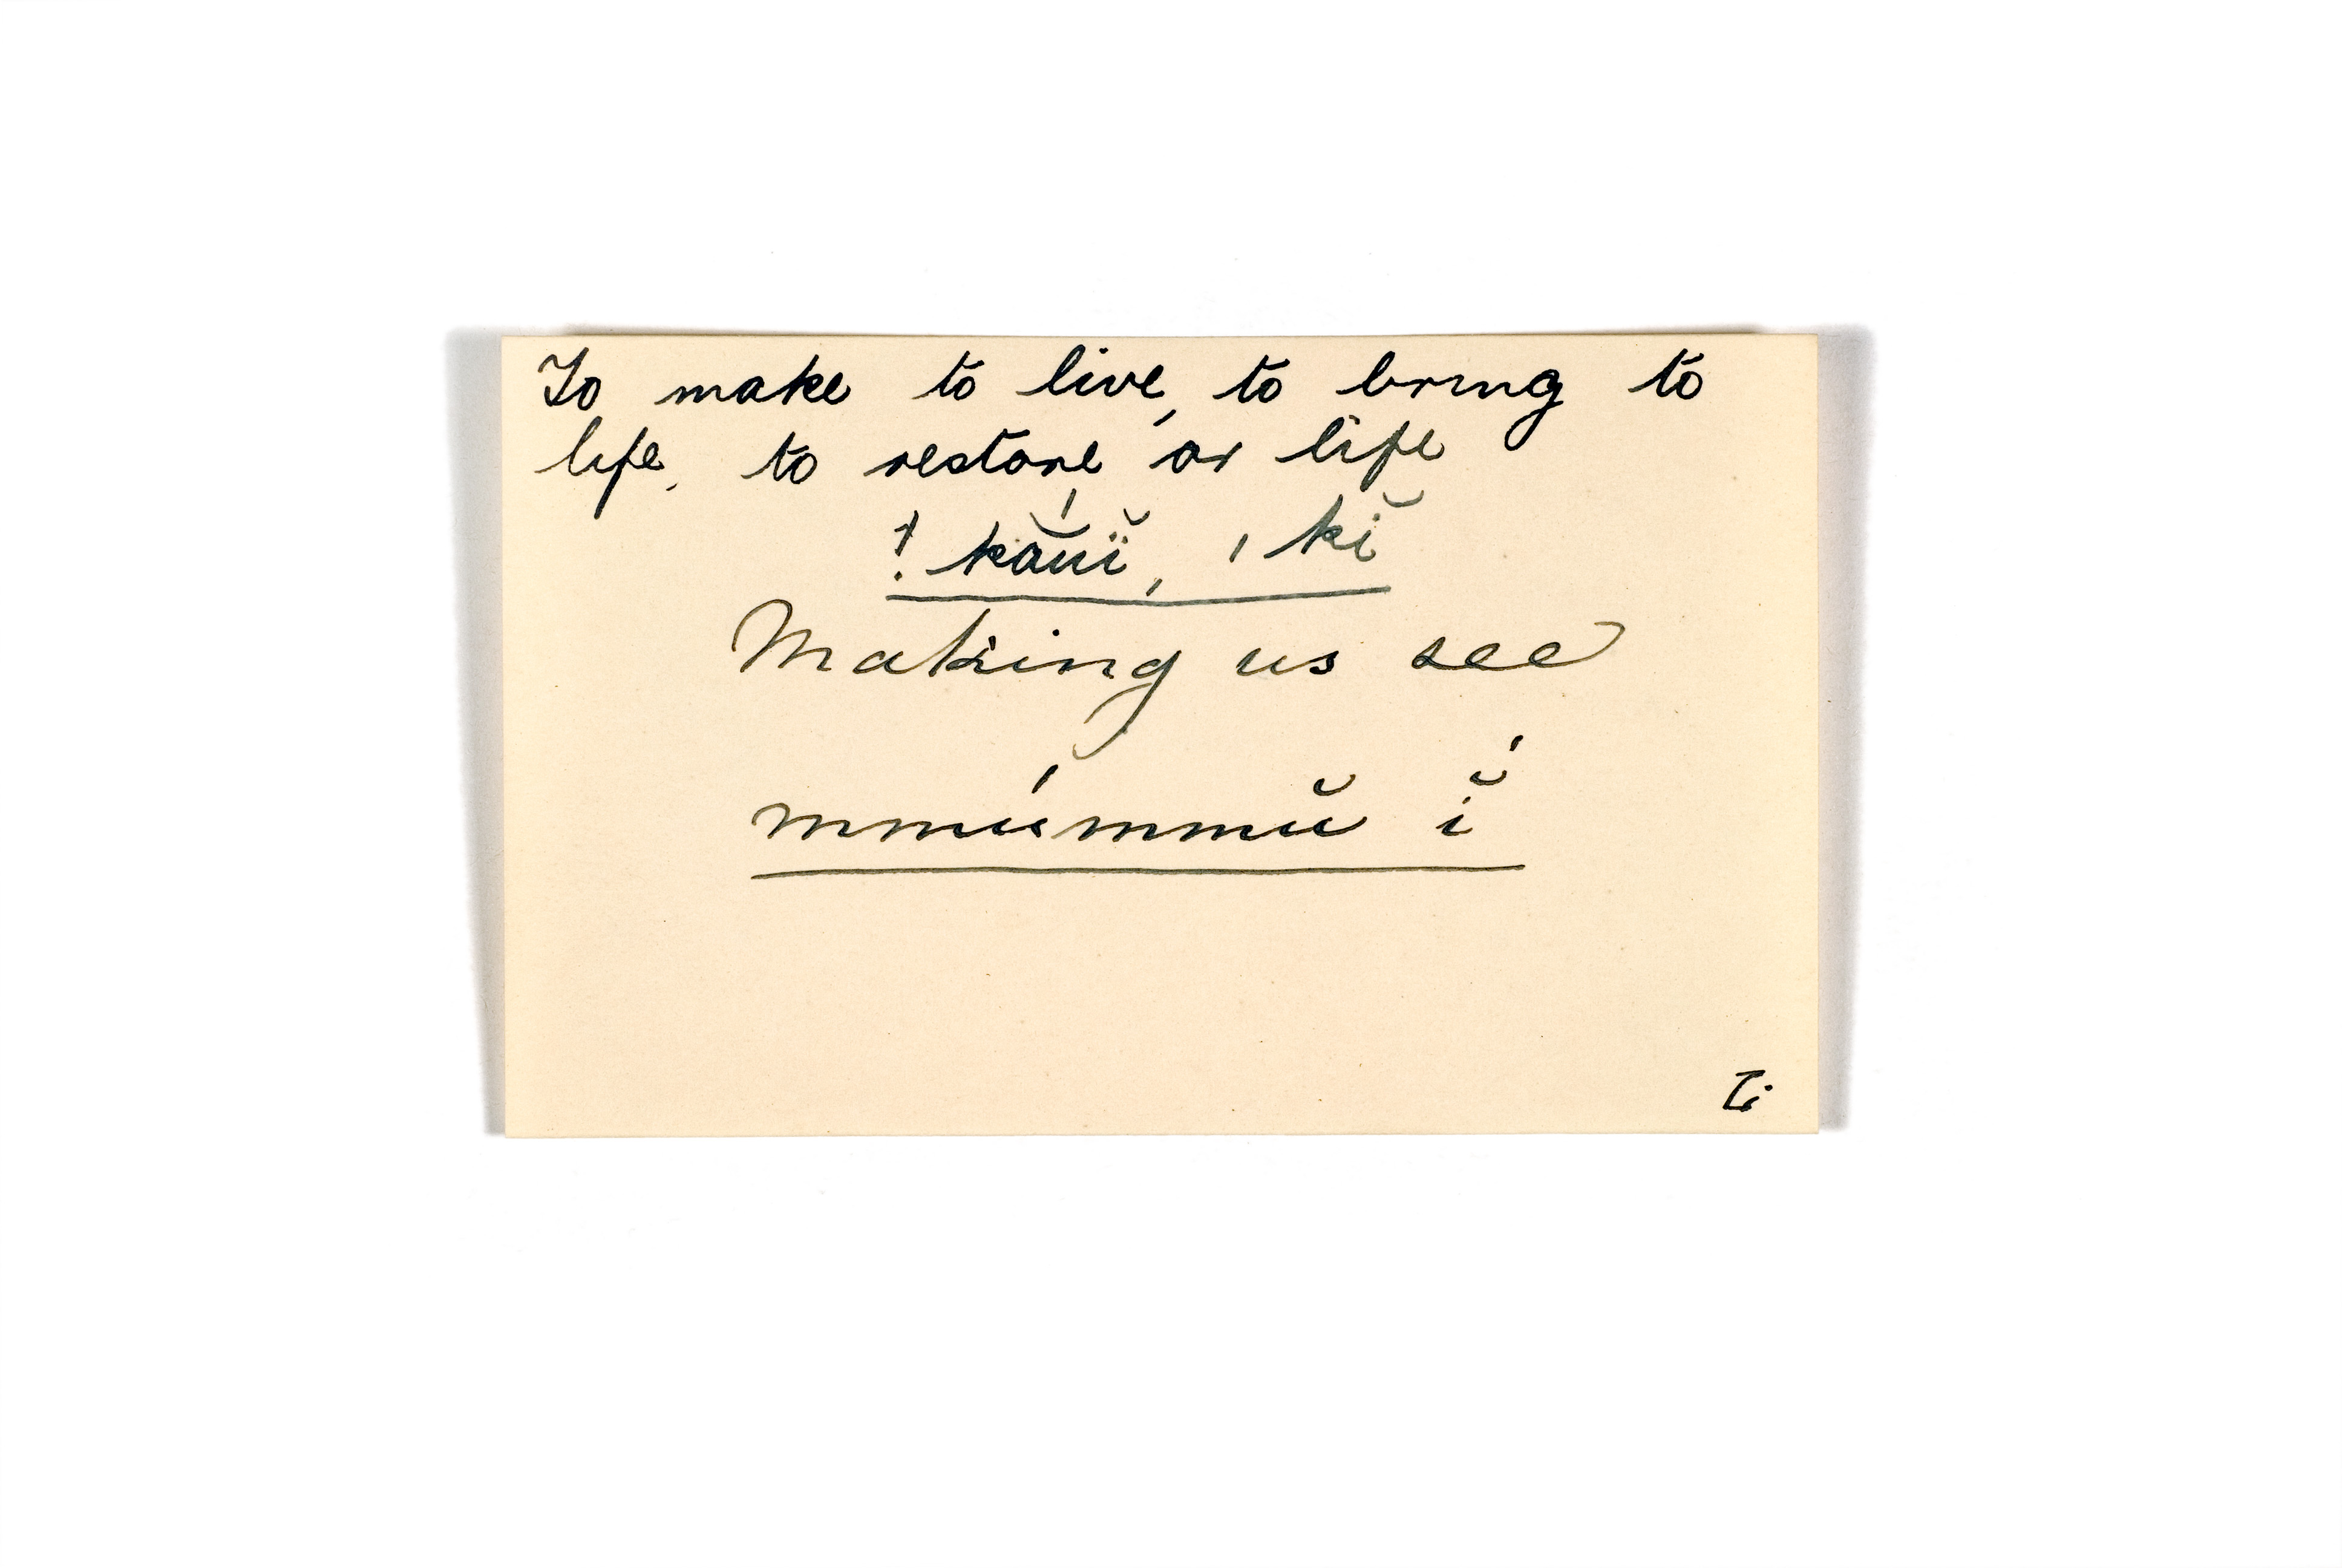 To make to live, to bring to
life, to restore or life
!kā̆úï̆, ˈkĭ
Making us see
mmúmmŭ ĭ́